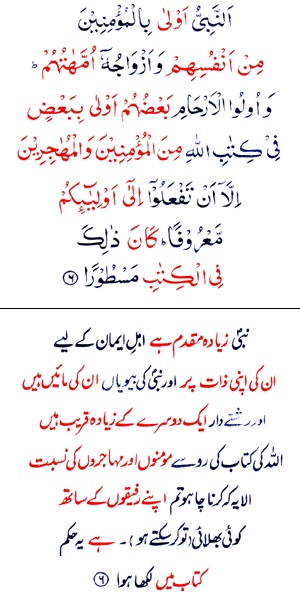 اَلنَّبِىُّ اَوْلٰى بِالْمُؤْمِنِيْنَ
مِنْ اَنْفُسِهِمْ وَاَزْوَاجُهٗۤ اُمَّهٰتُهُمْ ؕ
وَاُولُوا الْاَرْحَامِ بَعْضُهُمْ اَوْلٰى بِبَعْضٍ
فِىْ كِتٰبِ اللّٰهِ مِنَ الْمُؤْمِنِيْنَ وَالْمُهٰجِرِيْنَ
اِلَّاۤ اَنْ تَفْعَلُوْۤا اِلٰٓى اَوْلِيٰٓٮِٕكُمْ
مَّعْرُوْفًا ؕ كَانَ ذٰلِكَ
فِى الْكِتٰبِ مَسْطُوْرًا ﴿۶﴾
نبیؐ زیادہ مقدم ہے اہلِ ایمان کے لیے
ان کی اپنی ذات پر اور نبیؐ کی بیویاں ان کی مائیں ہیں
اور رشتے دار ایک دوسرے کے زیادہ قریب ہیں
اللہ کی کتاب کی رو سے مؤمنوں اور مہاجروں کی نسبت
الا یہ کہ کرنا چاہو تم اپنے رفیقوں کے ساتھ
کوئی بھلائی (تو کر سکتے ہو)۔ ہے یہ حکم
کتاب میں لکھا ہوا ﴿۶﴾